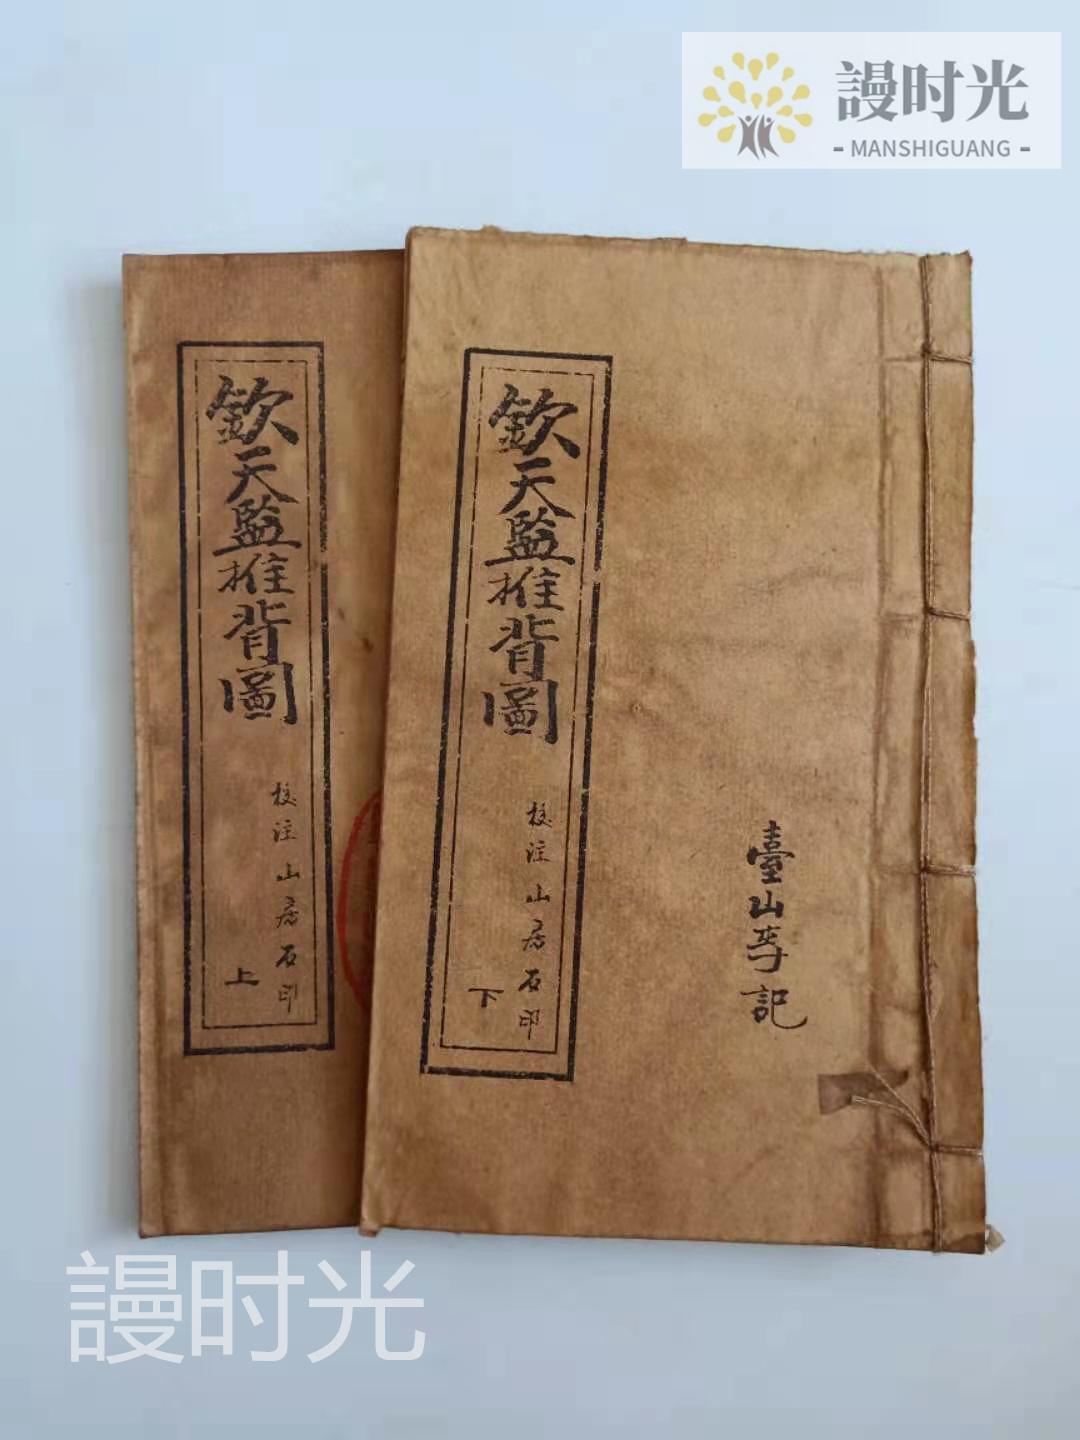 謾时光
- MANSHIGUANG -
欽天監推背圖
校注山房石印
上
欽天監推背圖
校注山房石印
下
臺山李記
謾时光